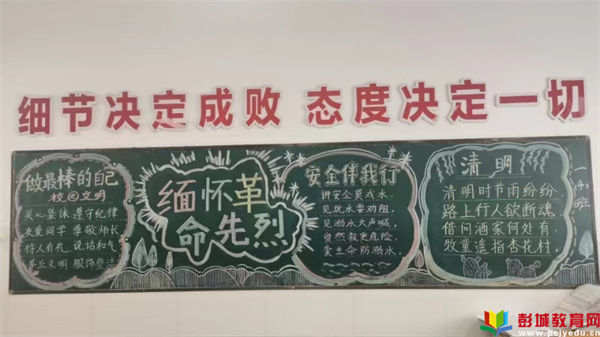 细节决定成败 态度决定一切
做最棒的自己
校园文明
关心集体 遵守纪律
友爱同学 尊敬师长
待人有礼 说话和气
举止文明 服饰整洁
缅怀革
命先烈
安全伴我行
讲安全莫戏水,
见玩水要劝阻,
见溺水大声喊,
爱生命防溺水。
清明
清明时节雨纷纷
路上行人欲断魂
借问酒家何处有
牧童遥指杏花村。
彭城教育网
www.pcjyedu.cn